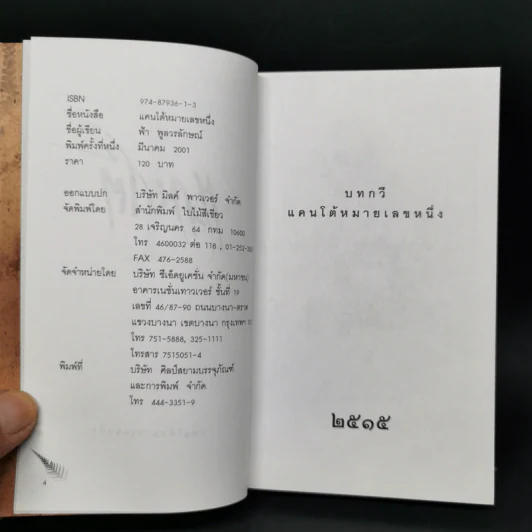 ISBN 974-87936-1-3
ชื่อหนังสือ แคนโต้หมายเลขหนึ่ง
ชื่อผู้เขียน ฟ้า พูลวรลักษณ์
พิมพ์ครั้งที่หนึ่ง มีนาคม 2001
ราคา 120 บาท
ออกแบบปก บริษัท มิลค์ พาวเวอร์ จำกัด
จัดพิมพ์โดย สำนักพิมพ์ ใบไม้สีเขียว
28 เจริญนคร 64 กทม 10600
โทร 4600032 ต่อ 118 , 01-252-
FAX 476-2588
จัดจำหน่ายโดย บริษัท ซีเอ็ดยูเคชั่น จำกัด(มหาชน)
อาคารเนชั่นทาวเวอร์ ชั้นที่ 19
เลขที่ 46/87-90 ถนนบางนา-ตราด
แขวงบางนา เขตบางนา กรุงเทพฯ
โทร 751-5888, 325-1111
โทรสาร 7515051-4
พิมพ์ที่ บริษัท ศิลป์สยามบรรจุภัณฑ์
และการพิมพ์ จำกัด
โทร 444-3351-9
4
บทกวี
แคนโต้หมายเลขหนึ่ง
๒๕๑๕